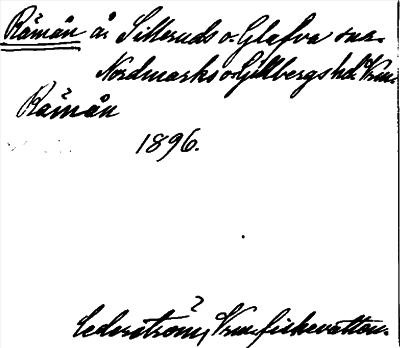 Rämån å i Silleruds o. Glafva snr.
Nordmarks o. Gillbergs hd. Vrm.
Rämån
1896.
Cederström, Vrm. fiskevatten.